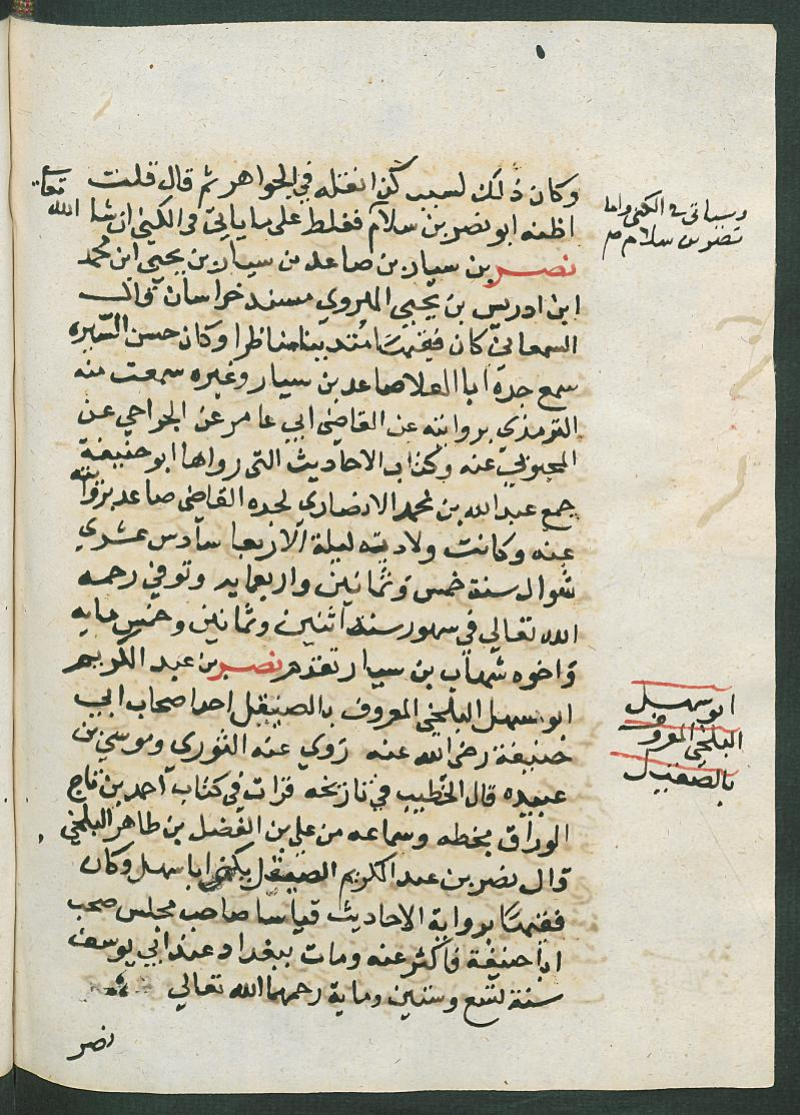 وكان ذلك لسيد كذا نقله في الجواهر ثم قال قلت
اظنه ابو نصر بن سلام فغلط على ما ياتي في الكنى ان شا الله تعالى
وسياتي في الكنى واما
نصر بن سلام
نصر بن سيار بن صاعد بن سيار بن يحيى ابن محمد
ابن ادريس بن يحيى الهروي مسند خراسان قال
السمعاني كان فقيها متدينا مناظرا وكان حسن السيره
سمع جده ابا العلا صاعد بن سيار وغيره سمعت منه
الترمذي بروايته عن القاضي ابي عامر عن الجراحي عن
المحبوبي عنه وكتاب الاحاديث التي رواها ابو حنيفة
جمع عبد الله بن محمد الانصاري لجده القاضي صاعد بروايته
عنه وكانت ولادته ليلة الاربعا سادس عشري
شوال سنة خمس وثمانين واربعمايه وتوفي رحمه
الله تعالى في سهور سنة اثنين وثمانين وخمس مايه
واخوه شهاب بن سيار تقدم نصر بن عبد الكريم
ابو سهل البلخي المعروف بالصيقل احد اصحاب ابي
حنيفة رضي الله عنه روي عنه الثوري وموسي بن
عبيده قال الخطيب في تاريخه قرات في كتاب احمد بن قاج
الوراق بخطه وسماعه من علي بن الفضل بن طاهر البلخي
قال نصر بن عبد الكريم الصيقل يكنى ابا سهل وكان
فقيها برواية الاحاديث قياسا صاحب مجلس صحب
ابا حنيفة فاكثر عنه ومات ببغداد عند ابي يوسف
سنة تسع وستين وماية رحمهما الله تعالى
ابو سهل
البلخي المعروف
بالصقيل
نصر